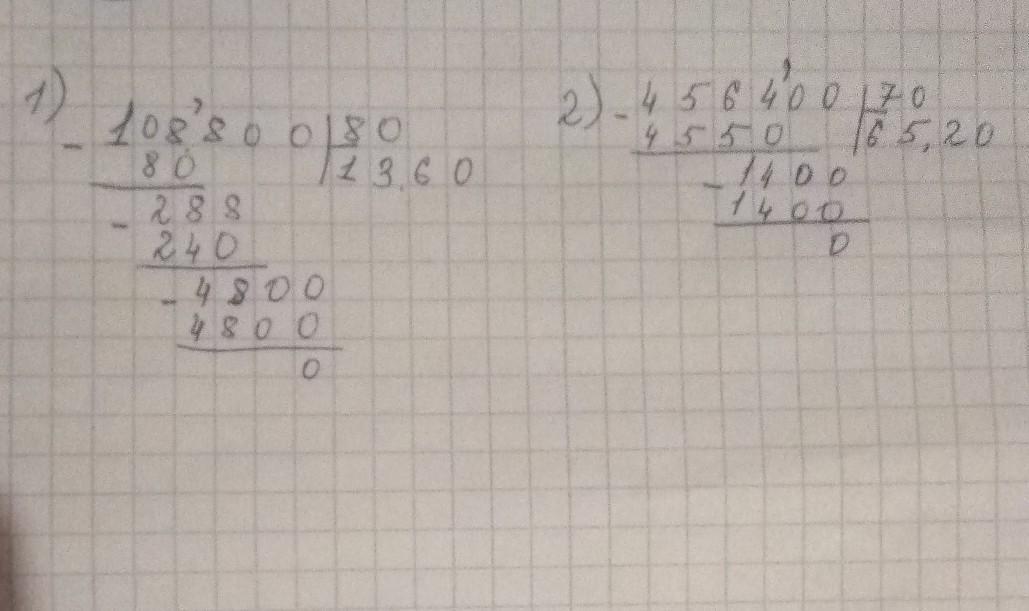 1) - 108'800 | 80
80 | 13.60
- 288
240
- 4800
4800
0
2) - 4564'00 | 70
4550 | 65,20
- 1400
1400
0